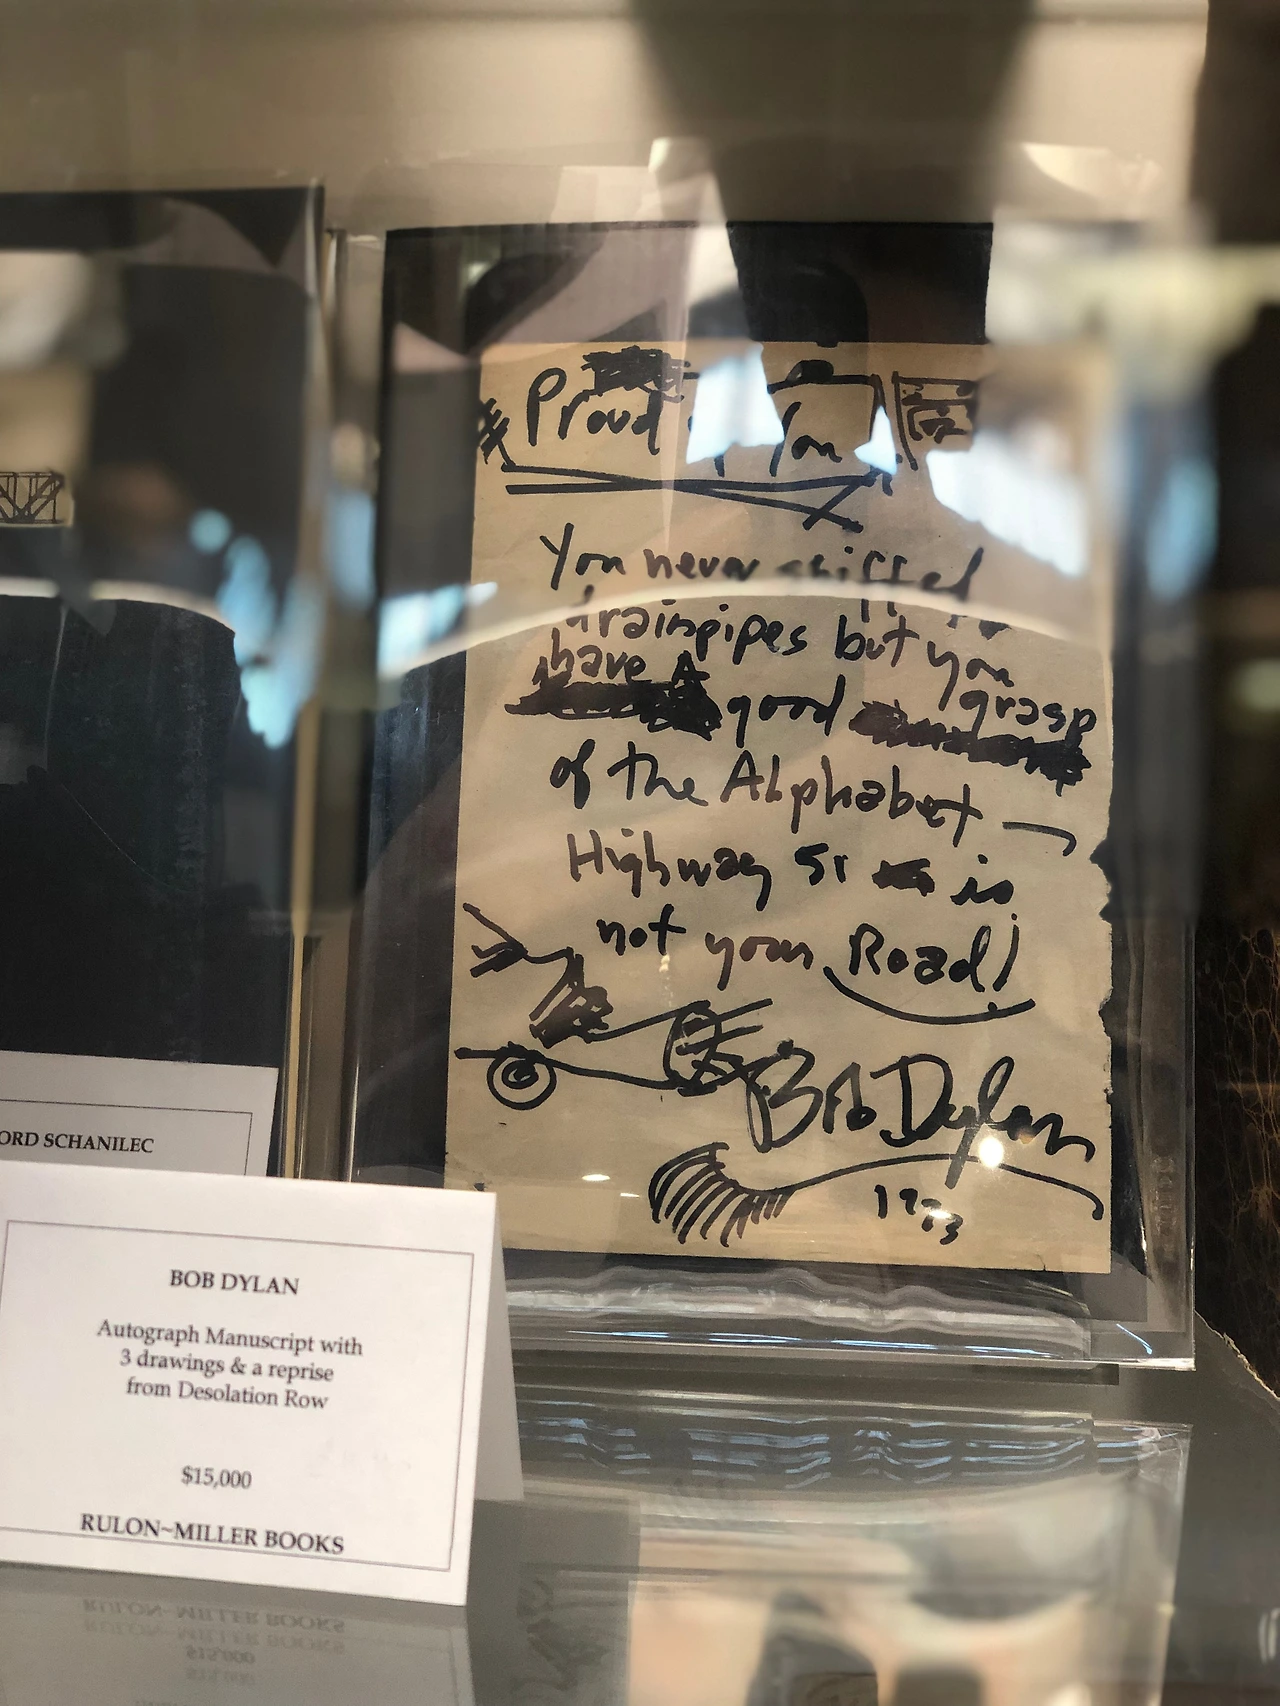 Proud You
You never sniffed
drainpipes but you
have A good grasp
of the Alphabet —
Highway 51 is
not your Road!
Bob Dylan
1973
ORD SCHANILEC
BOB DYLAN
Autograph Manuscript with
3 drawings & a reprise
from Desolation Row
$15,000
RULON~MILLER BOOKS